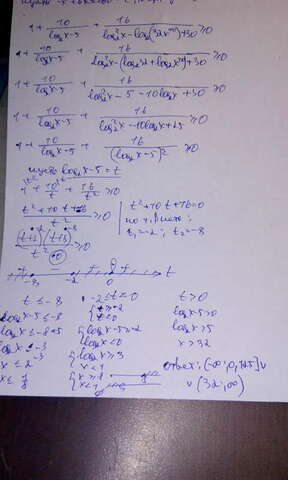 1 + 10/(log₂x-5) + 16/(log₂²x - log₂(32x¹⁰)+30) ≥0
1 + 10/(log₂x-5) + 16/(log₂²x-(log₂32+log₂x¹⁰)+30) ≥0
1 + 10/(log₂x-5) + 16/(log₂²x - 5 - 10log₂x + 30) ≥0
1 + 10/(log₂x-5) + 16/(log₂²x - 10log₂x + 25) ≥0
1 + 10/(log₂x-5) + 16/(log₂x-5)² ≥0
пусть log₂x-5 = t
1 + 10/t + 16/t² ≥0
(t²+10t+16)/t² ≥0 | t²+10t+16=0
по т. Виета:
t₁=-2; t₂=-8
(t+2)(t+8)/t² ≥0
-8 -2 0 t
t ≤ -8 -2≤t<0 t>0
log₂x-5≤-8 log₂x-5>0
log₂x≤-8+5 log₂x-5≥-2 log₂x>5
log₂x≤-3 log₂x≥3 x>32
ответ:
(32;∞)